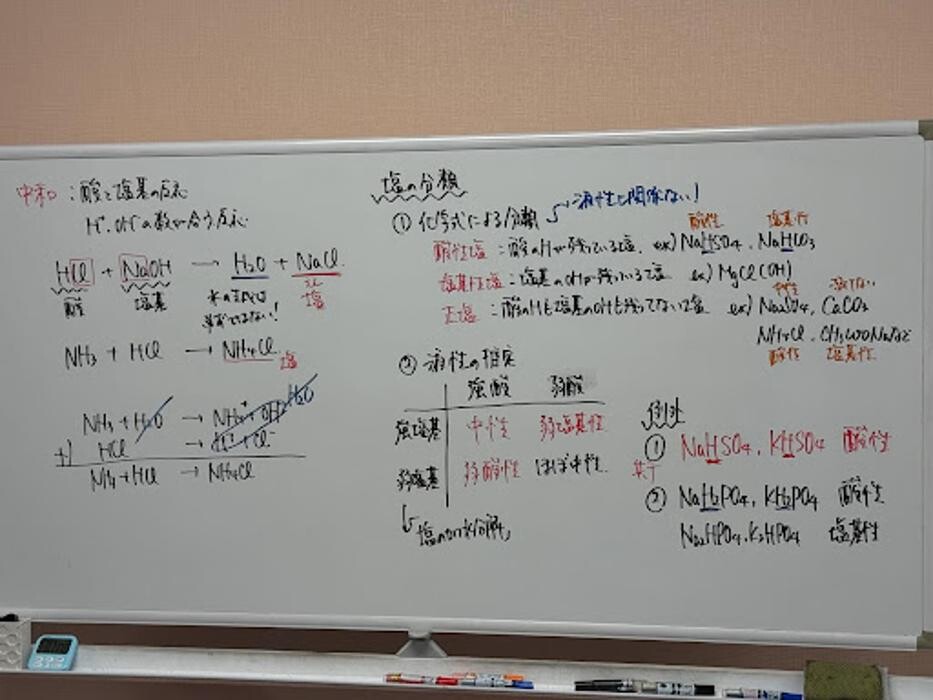 中和：酸と塩基の反応
H⁺, OH⁻の数が合う反応
HCl + NaOH → H₂O + NaCl
酸 塩基 水の生成は必須ではない! 塩
NH₃ + HCl → NH₄Cl 塩
NH₃ + H₂O → NH₄⁺ + OH⁻ H₂O
+) HCl → H⁺ + Cl⁻
NH₃ + HCl → NH₄Cl
塩の分類
① 化学式による分類 液性と関係ない!
酸性 塩基性
酸性塩：酸のHが残っている塩 ex) NaHSO₄, NaHCO₃
塩基性塩：塩基のOHが残っている塩 ex) MgCl(OH)
中性 溶けない
正塩：酸のHも塩基のOHも残ってない塩 ex) Na₂SO₄, CaCO₃
NH₄Cl, CH₃COONaなど
酸性 塩基性
② 液性の推定
強酸 弱酸
強塩基 中性 弱塩基性
弱塩基 弱酸性 ほぼ中性
塩の加水分解
例外
① NaHSO₄, KHSO₄ 酸性
② NaH₂PO₄, KH₂PO₄ 酸性
Na₂HPO₄, K₂HPO₄ 塩基性